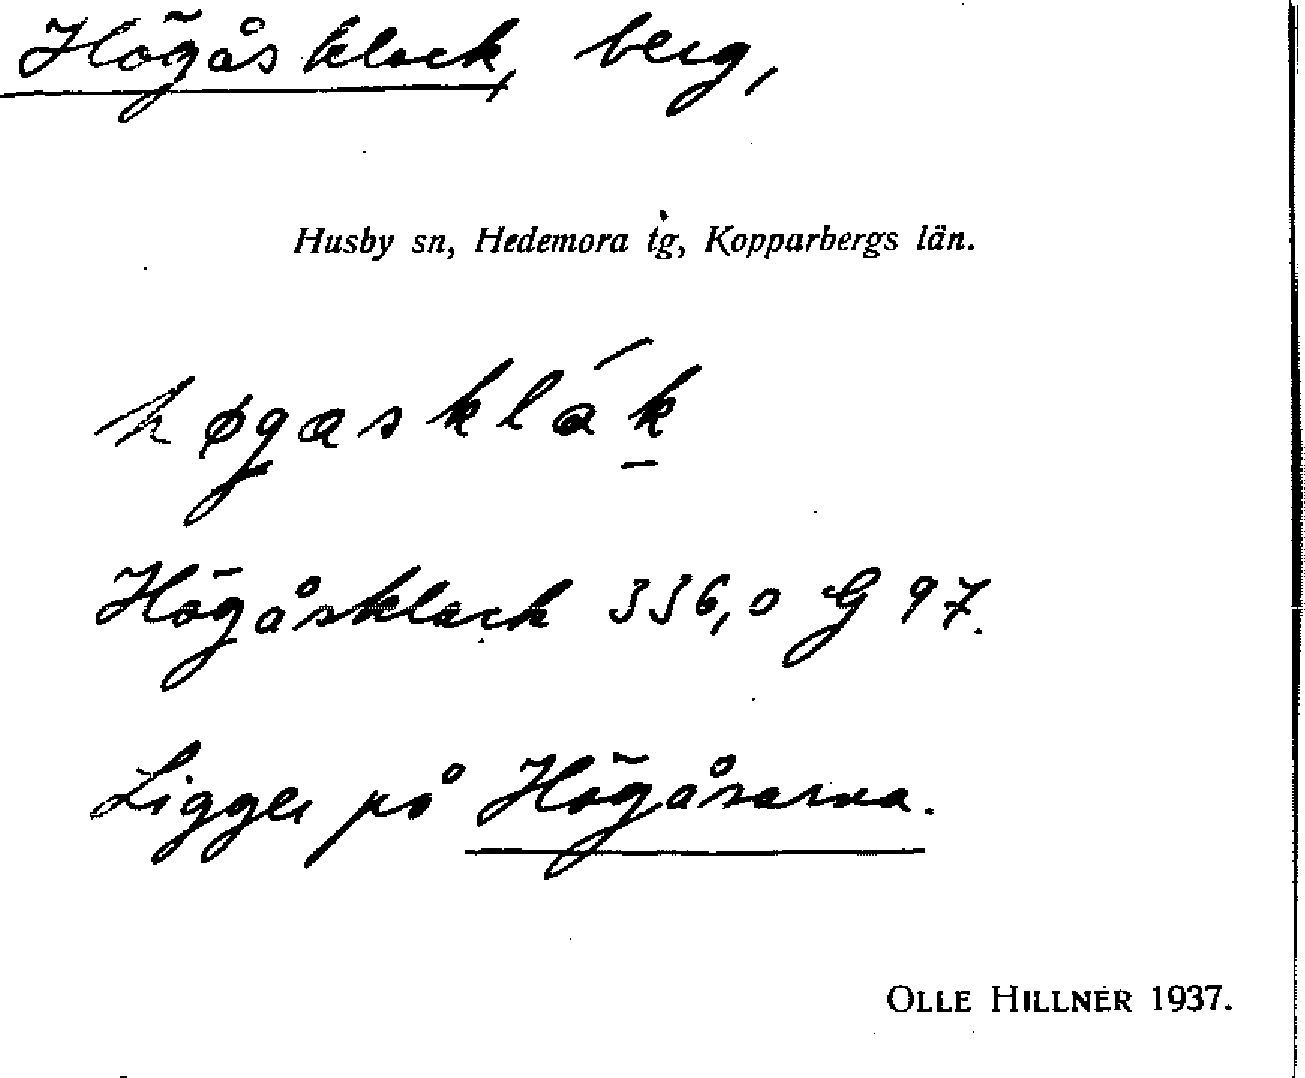 Högåsklack, berg,
Husby sn, Hedemora tg, Kopparbergs län.
høgasklák
Högåsklack 336,0 G 97.
Ligger på Högåsarna.
OLLE HILLNER 1937.